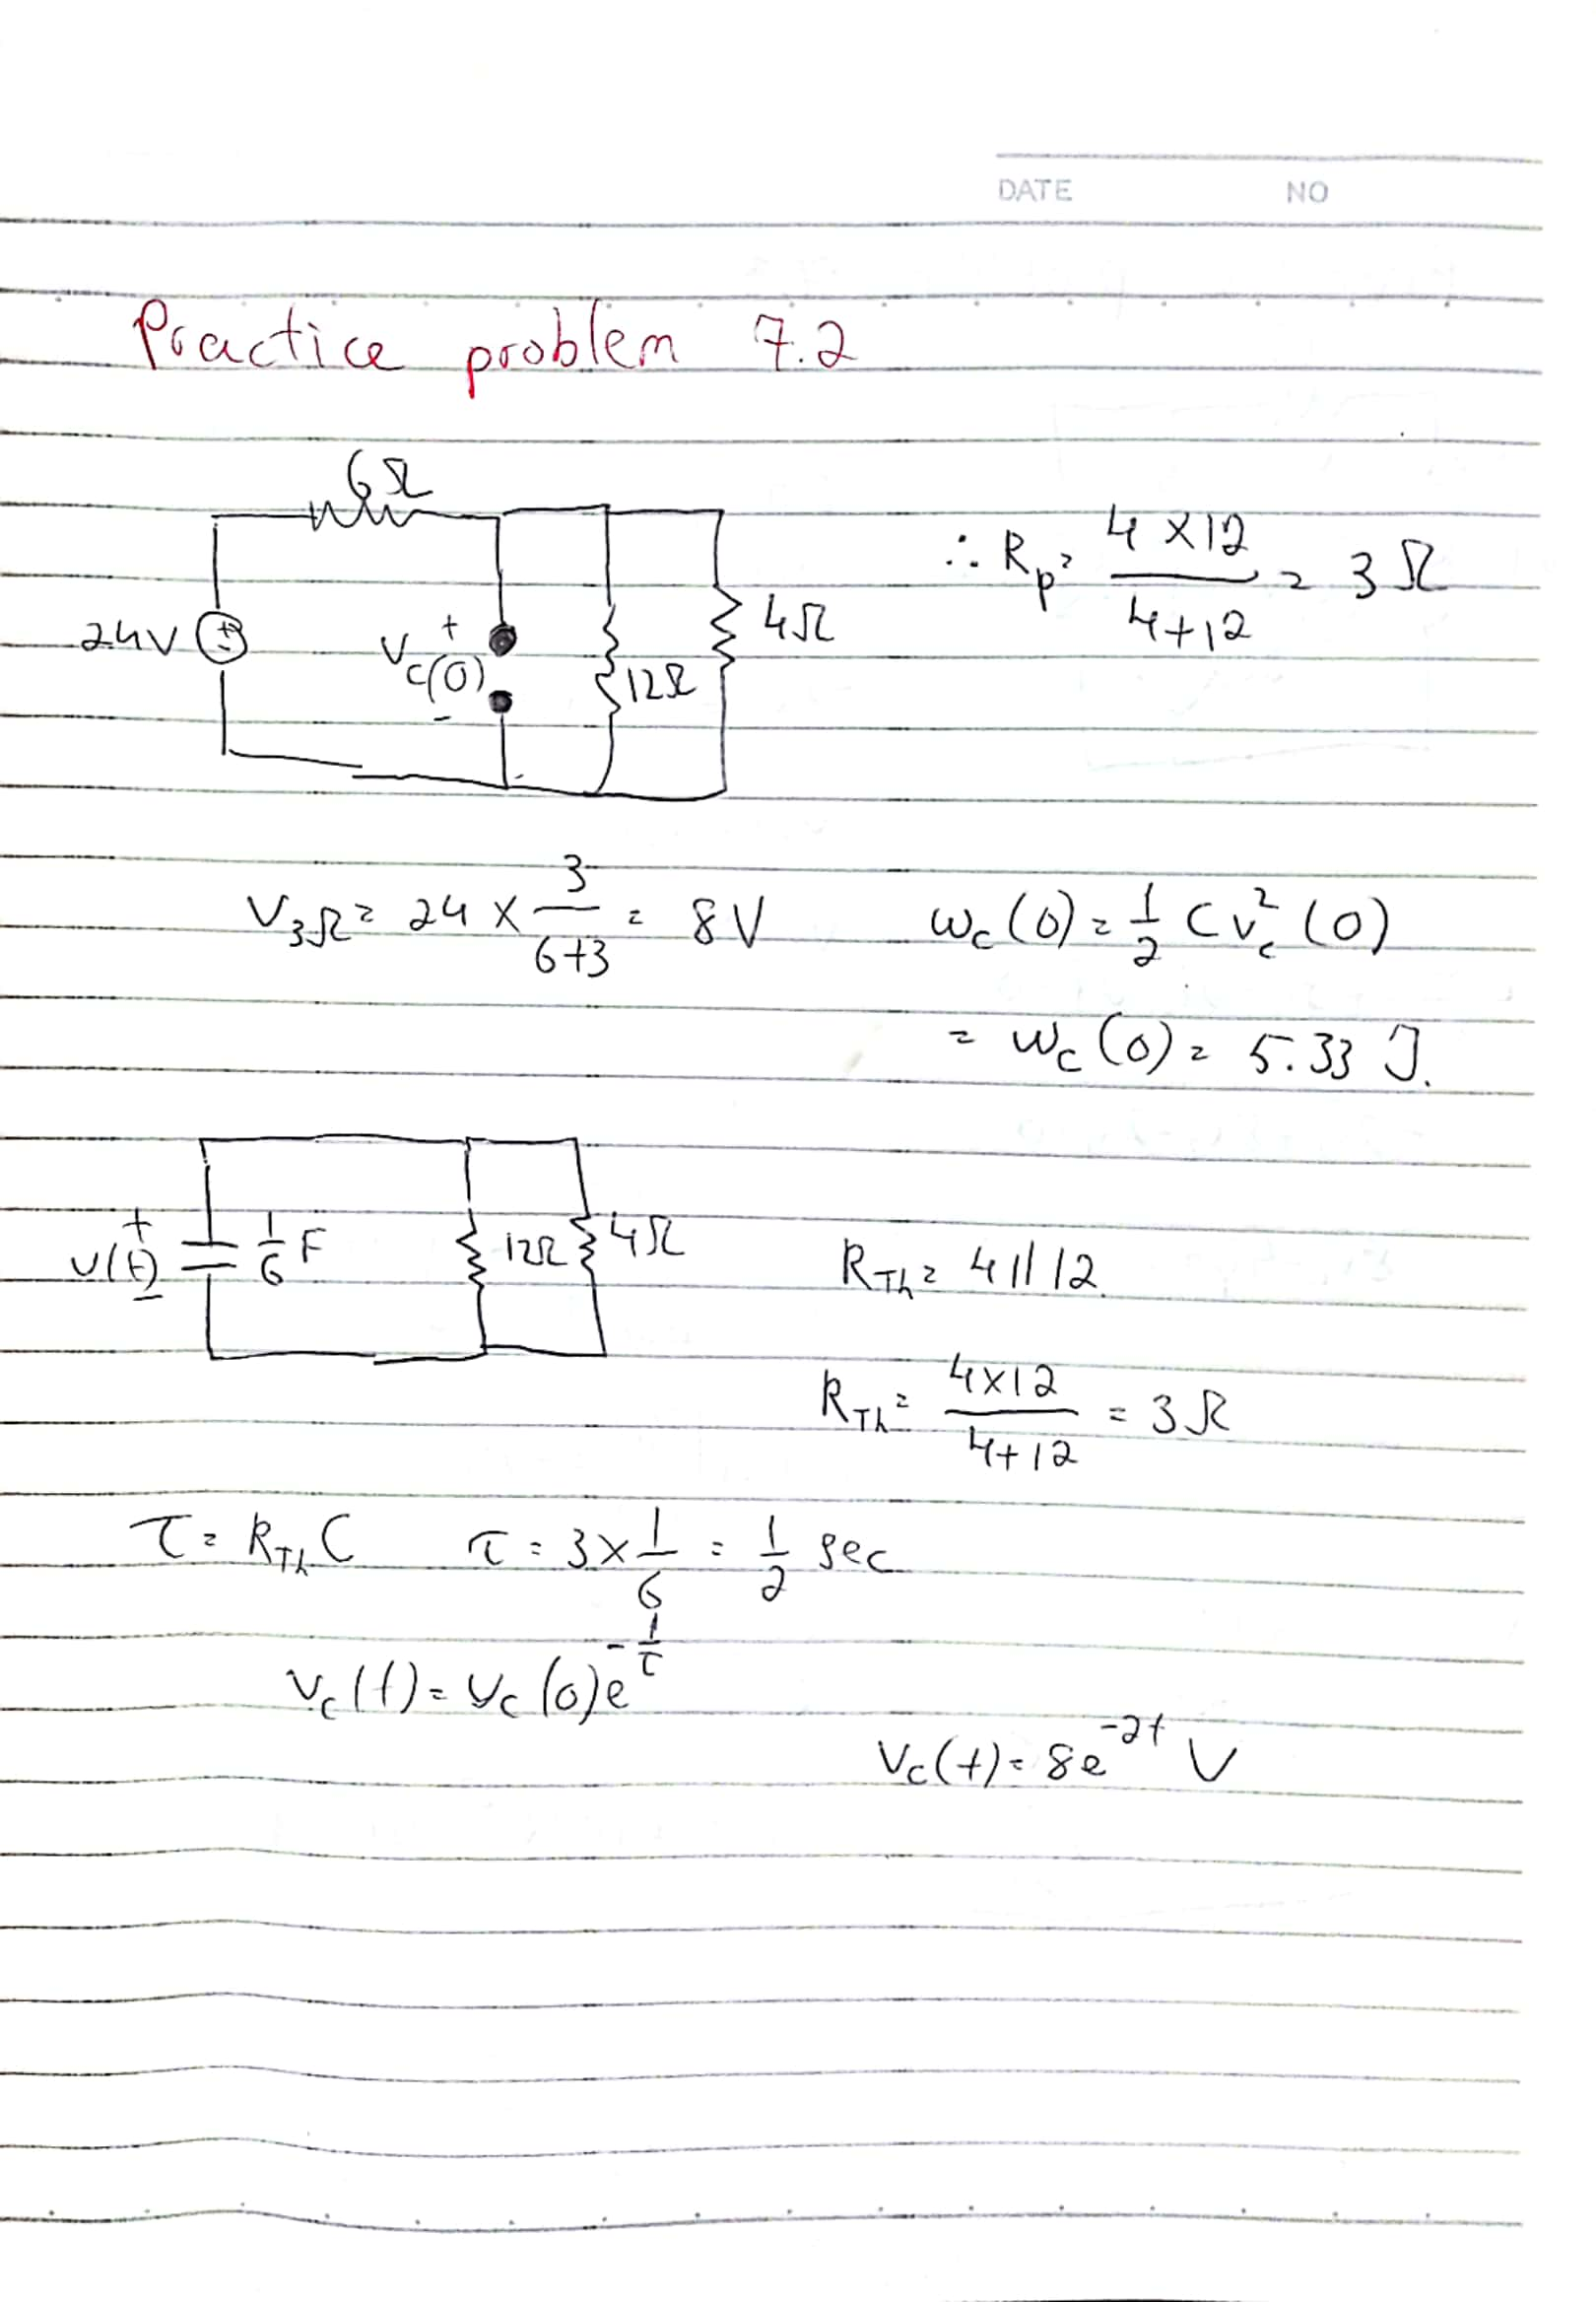 DATE NO
Practice problem 7.2
6Ω
24V
+
Vc(0)
-
12Ω
4Ω
∴ Rp = 4 × 12 / 4+12 = 3 Ω
V3Ω = 24 × 3 / 6+3 = 8 V
wc(0) = 1/2 C vc²(0)
= wc(0) = 5.33 J.
+
v(t)
-
1/6 F
12Ω
4Ω
RTh = 4 || 12
RTh = 4×12 / 4+12 = 3 Ω
τ = RTh C τ = 3 × 1/6 = 1/2 sec
Vc(t) = Vc(0)e^-1/τ
Vc(t) = 8e^-2t V